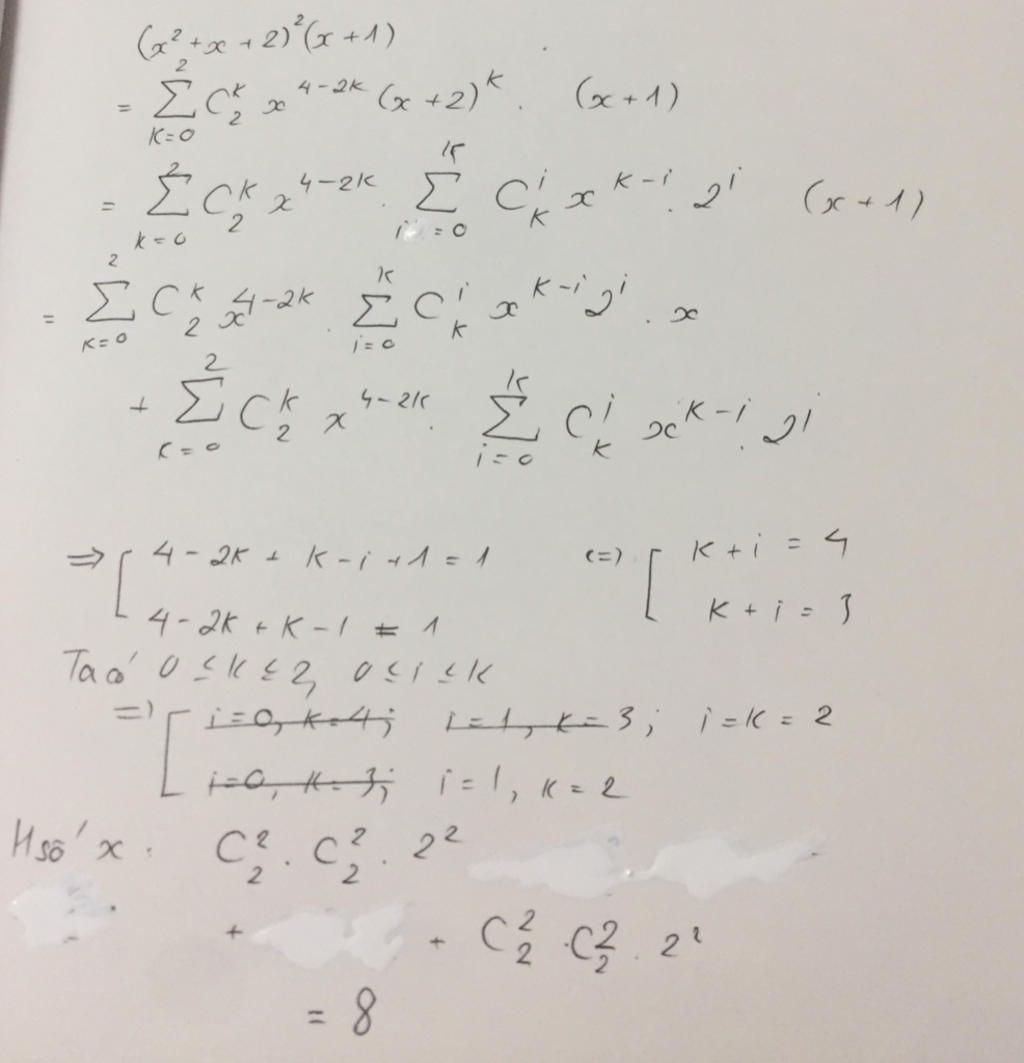 (x² + x + 2)² (x + 1)
= ∑_{K=0}^{2} C_2^K x^{4-2K} (x + 2)^K . (x + 1)
= ∑_{k=0}^{2} C_2^K x^{4-2K} . ∑_{i=0}^{K} C_K^i x^{K-i} . 2^i (x + 1)
= ∑_{K=0}^{2} C_2^K x^{4-2K} . ∑_{i=0}^{K} C_K^i x^{K-i} 2^i . x
+ ∑_{K=0}^{2} C_2^K x^{4-2K} . ∑_{i=0}^{K} C_K^i x^{K-i} . 2^i
=> [ 4 - 2K + K - i + 1 = 1 (=) [ K + i = 4
4 - 2K + K - 1 = 1 K + i = 3
Ta có 0 ≤ K ≤ 2, 0 ≤ i ≤ K
=> [ i = 0, K = 4; i = 1, K = 3; i = K = 2
i = 0, K = 3; i = 1, K = 2
H số x : C_2^2 . C_2^2 . 2^2
+ + C_2^2 . C_2^2 . 2^2
= 8